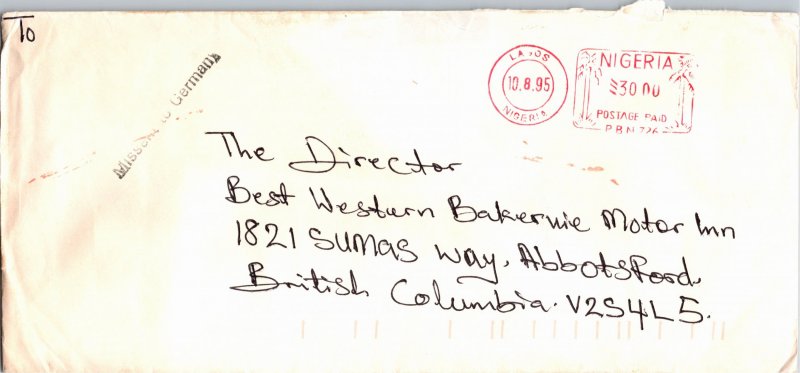 To
Missent to Germany
LAGOS
10.8.95
NIGERIA
NIGERIA
30 00
POSTAGE PAID
P.B.N 726
The Director
Best Western Bakerwie Motor Inn
1821 SUMAS Way, Abbotsford,
British Columbia. V2S4L5.